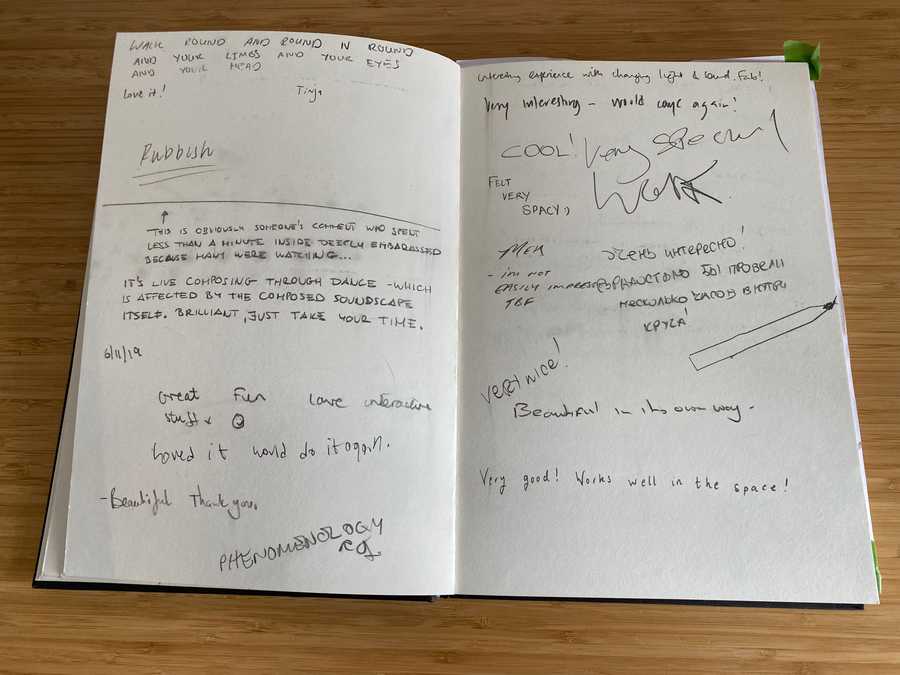 WALK ROUND AND ROUND IN ROUND
AND YOUR LIMBS AND YOUR EYES
AND YOUR HEAD
Love it!
Tinja
Rubbish
THIS IS OBVIOUSLY SOMEONE'S COMMENT WHO SPENT
LESS THAN A MINUTE INSIDE DEEPLY EMBARASSED
BECAUSE MANY WERE WATCHING...
IT'S LIVE COMPOSING THROUGH DANCE - WHICH
IS AFFECTED BY THE COMPOSED SOUNDSCAPE
ITSELF. BRILLIANT, JUST TAKE YOUR TIME.
6/11/19
Great Fun Love interactive
stuff x
Loved it would do it again.
- Beautiful Thank you.
PHENOMENOLOGY
Interesting experience with changing light & sound. Fab!
Very interesting - would come again!
COOL!
Very special
Work
FELT
VERY
SPACY :)
MEH
- im not
EASILY IMPRESSED
TBF
ОЧЕНЬ ИНТЕРЕСНО!
БЫ ПРОВЕЛИ
НЕСКОЛЬКО ЧАСОВ ВНУТРИ
КРУГА!
VERY NICE!
Beautiful in its own way -
Very good! Works well in the space!